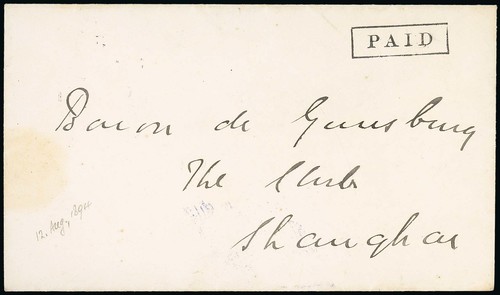 PAID
Baron de Gunsburg
The Club
Shanghai
12. Aug, 1894